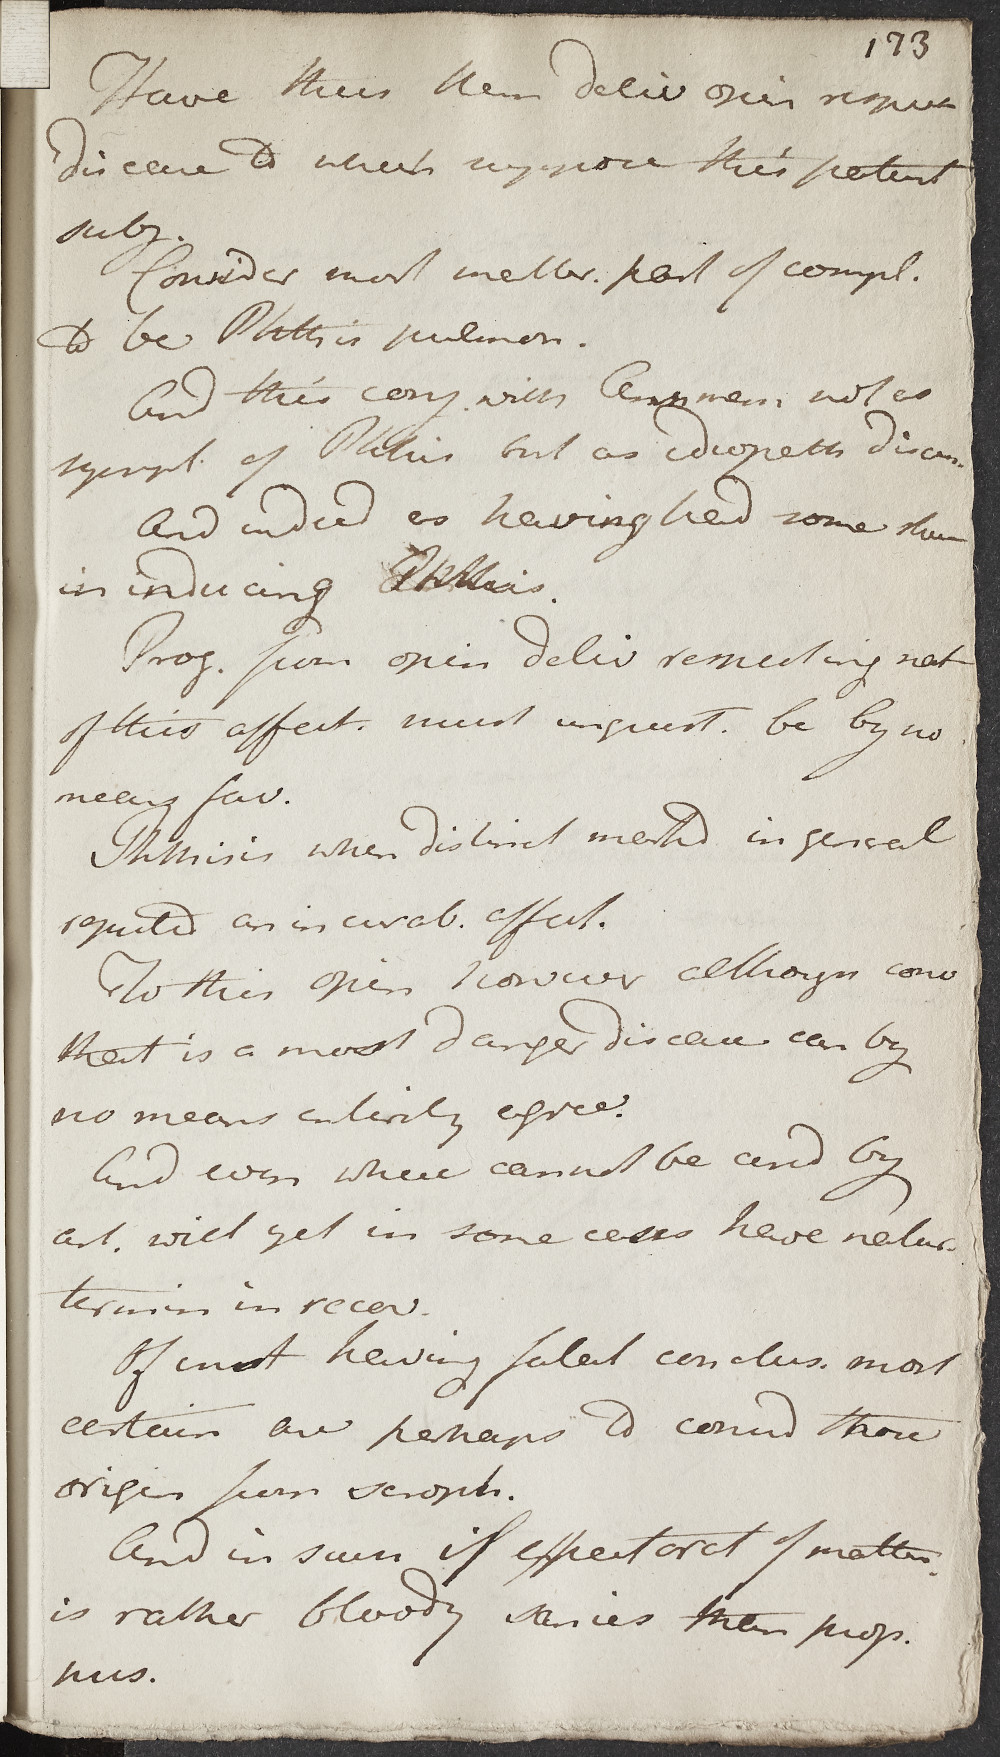 173
Have thus then deliv opin respect
disease to which suppose this patient
subj.
Consider most matter. part of compl.
to be Phthisis pulmon.
And this conj. with Amenn not as
sympt. of Phthis but as idiopath diseas.
And indeed as having had some share
in inducing Phthisis.
Prog. from opin deliv respecting nat
of this affect. must unquest. be by no
means fav.
Phthisis when distinct markd in general
reputed an incurab. affect.
To this opin however although conv
that is a most danger disease can by
no means entirely agree.
And even where cannot be curd by
art. will yet in some cases have natur.
termin in recov.
Of most having fatal conclus. most
certain are perhaps to consid those
origin from scroph.
And in such if expectorat of matter.
is rather bloody sanies than prop.
pus.